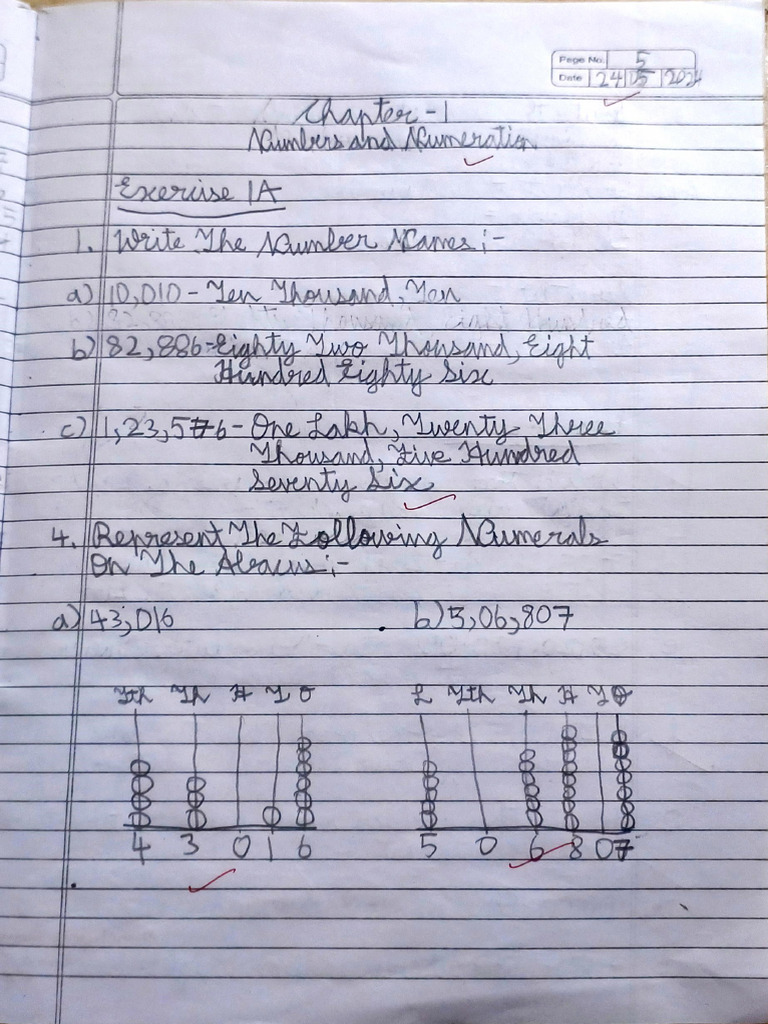 Page No. 5
Date 24 05 2024
Chapter-1
Numbers and Numeration
Exercise 1A
1. Write The Number Names:-
a) 10,010 - Ten Thousand, Ten
b) 82,886 - Eighty Two Thousand, Eight
Hundred Eighty Six
c) 1,23,576 - One Lakh, Twenty Three
Thousand, Five Hundred
Seventy Six
4. Represent The Following Numerals
On The Abacus:-
a) 43,016 b) 5,06,807
Tth Th H T O L Tth Th H T O
4 3 0 1 6 5 0 6 8 0 7